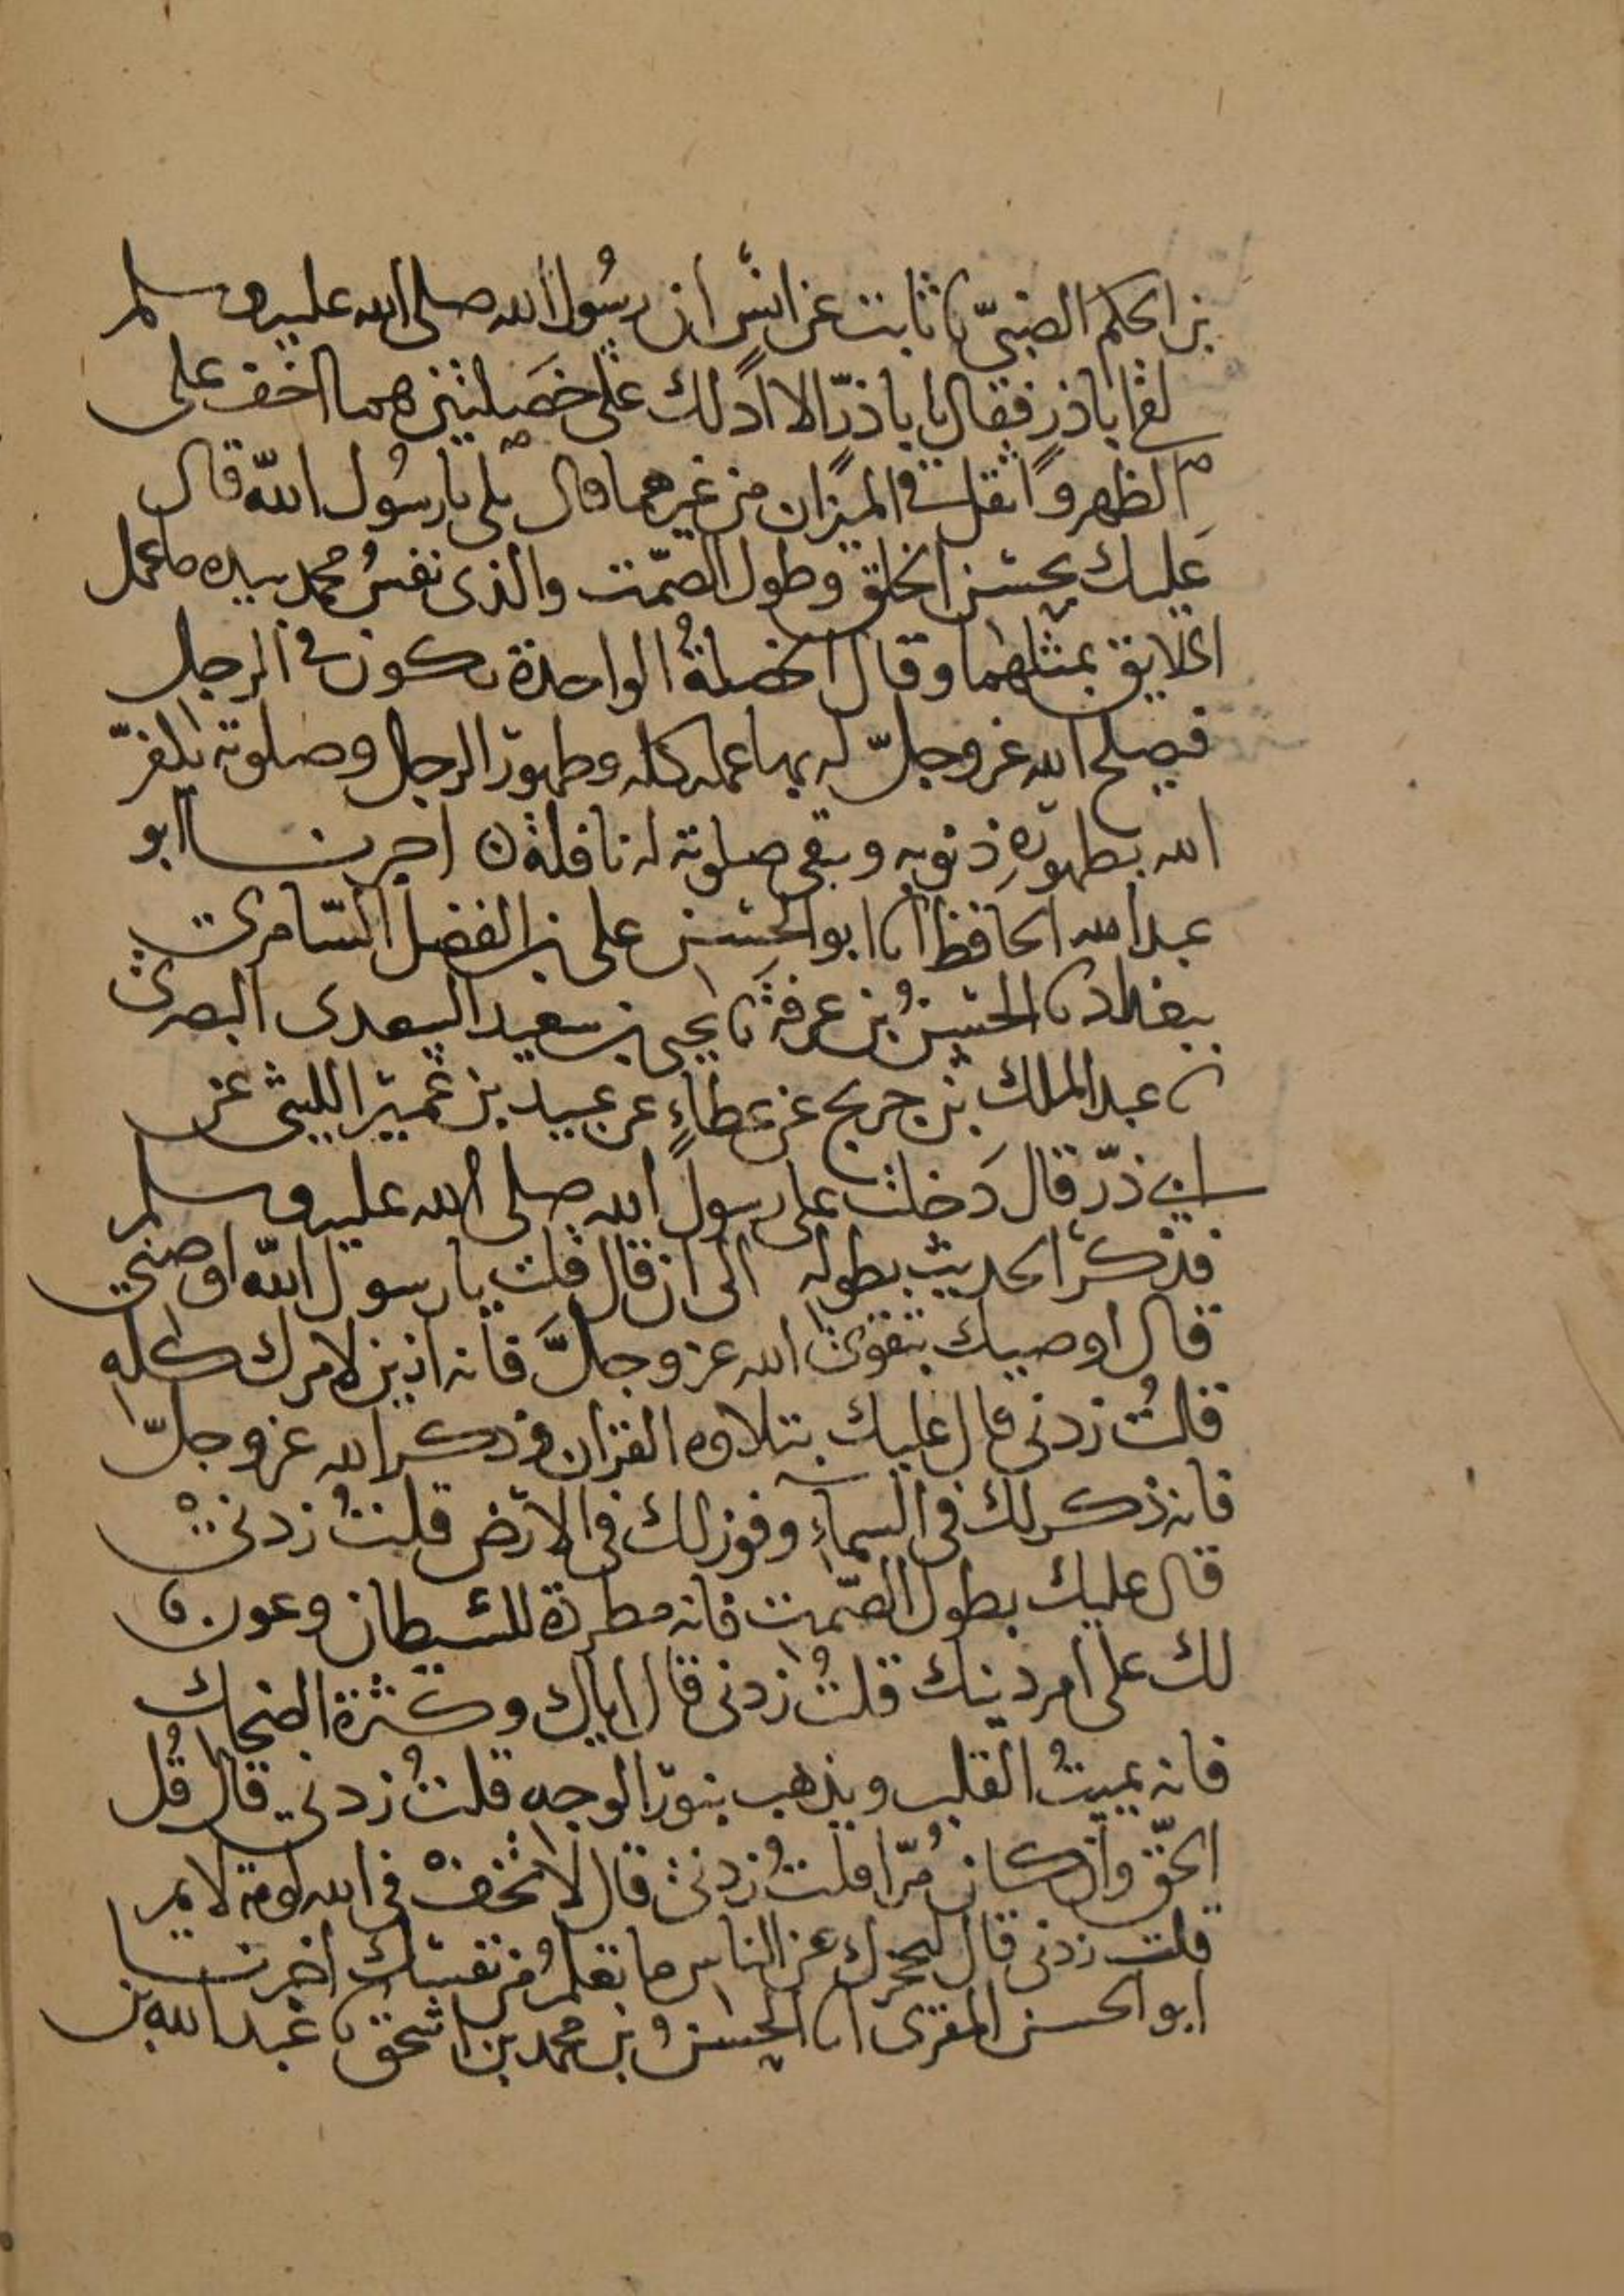 بن الحكم الضبيّ نا ثابت عن انس أن رسُول الله صلى الله عليه وسلم
لقى اباذر فقال يا با ذرّ الا ادلك على خصَلتين هما اخف على
الظهر واثقل في الميزان من غيرهما قال بلى يا رسُول الله قال
عليك بحسن الخلق وطول الصّمت والذي نفسُ محمد بيده ما عمل
الخلايق بمثلهما وقال الخصلةُ الواحدة تكون في الرجل
فيصلح الله عز وجلّ له بها عمله كله وطهور الرجل وصلوته يكفرّ
الله بطهورِه ذنوبه وبقى صلوته له نافلة ن اخبرنا ابو
عبد الله الحافظ انا ابو الحسن على بن الفضل السّامرى
ببغداد نا الحسنُ بن عرفةَ نا يحيى بن سعيد السعدى البصرى
نا عبد الملك بن جريج عن عطاءٍ عن عبيد بن عمير الليثى عن
ابي ذرّ قال دَخلت على رسول الله صلى الله عليه وسلم
فذكر الحديث بطوله الى ان قال قلت يا رسول الله اوصنى
قال اوصيك بتقوى الله عز وجلَّ فانه ازين لامرك كله
قلتُ زدنى قال عليك بتلاوه القران وذكر الله عز وجلّ
فانه ذكر لك في السماءِ ونور لك في الارض قلتُ زدنى
قال عليك بطول الصّمت فانه مطردة للشيطان وعون
لك على امر دينك قلتُ زدنى قال اياك وكثرة الضحك
فانه يميتُ القلب ويذهب بنور الوجه قلتُ زدني قال قُل
الحقّ وان كان مُرّا قلتُ زدنى قال لا تخفْ في الله لومة لايم
قلت زدنى قال ليحجزك عن الناس ما تعلمُ من نفسك اخبرنا
ابو الحسن المقرى انا الحسنُ بن محمد بن اسحق نا عبد الله بن